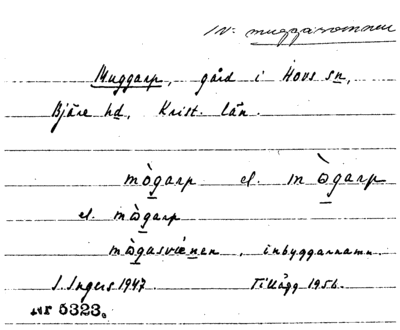 Muggarp, gård i Hovs sn,
Bjäre hd, Krist. län.
mògarp el. mògarp
el. mògarp
inbyggarnamn.
I. Ingers 1947. Tillägg 1956.
Nr 5323.